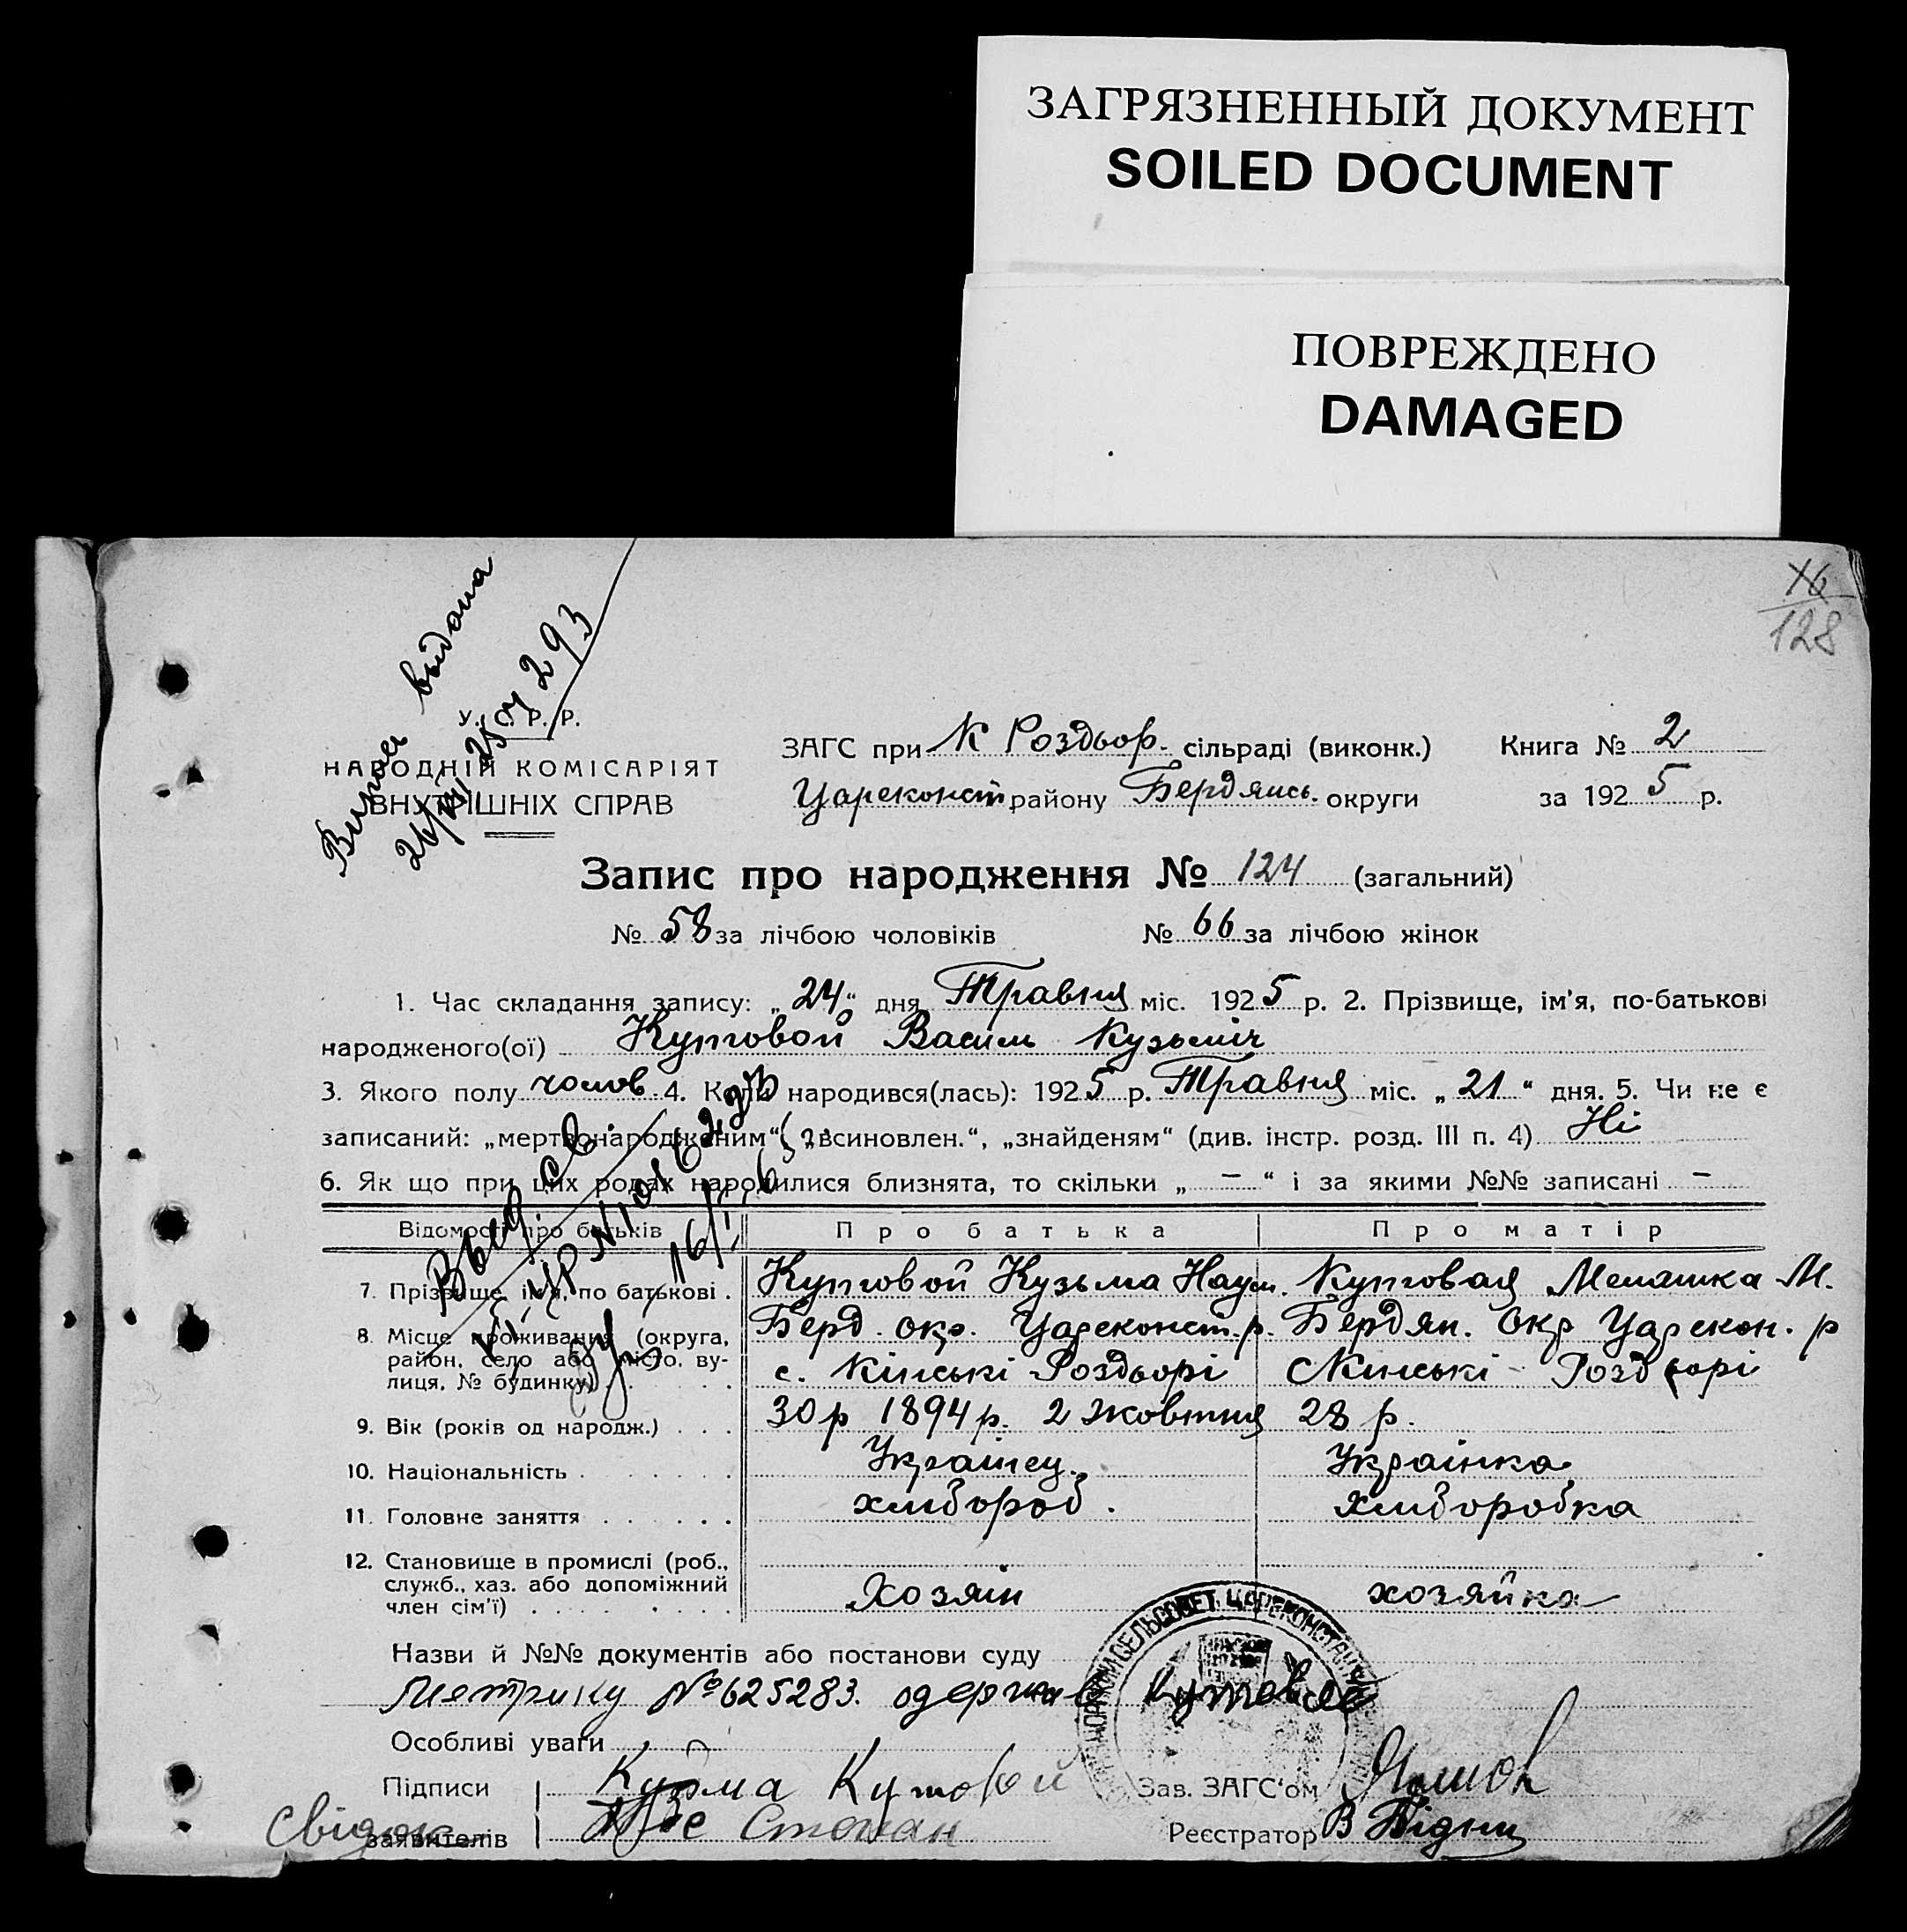 ЗАГРЯЗНЕННЫЙ ДОКУМЕНТ
SOILED DOCUMENT
ПОВРЕЖДЕНО
DAMAGED
128
выдана
У. С. Р. Р.
НАРОДНІЙ КОМІСАРІЯТ
ВНУТРІШНІХ СПРАВ
ЗАГС при К Роздьор. сільраді (виконк.) Книга № 2
Цареконст. району Бердянсь. округи за 1925 р.
Запис про народження № 124 (загальний)
№ 58 за лічбою чоловіків № 66 за лічбою жінок
1. Час складання запису: „24“ дня Травня міс. 1925 р. 2. Прізвище, ім'я, по-батькові
народженого(ої) Кутовой Василь Кузьміч
3. Якого полу чолов. 4. Коли народився(лась): 1925 р. Травня міс. „21“ дня. 5. Чи не є
записаний: „мертвонародженим“, „всиновлен.“, „знайденям“ (див. інстр. розд. III п. 4) Ні
6. Як що при цих родах народилися близнята, то скільки „ — “ і за якими №№ записані —
Відомості про батьків Про батька Про матір
7. Прізвище, ім'я, по батькові . Кутовой Кузьма Наум. Кутовая Мелашка М.
8. Місце проживання (округа, район, село або місто, вулиця, № будинку) Берд. окр. Цареконст. р. Бердян. Окр Царекон. р
с. Кінські Роздьорі с Кінські - Роздьорі
9. Вік (років од народж.) . . . 30 р 1894 р. 2 жовтня 28 р.
10. Національність . Українец. Українка.
11. Головне заняття . хлібороб. хліборобка
12. Становище в промислі (роб.,
служб., хаз. або допоміжний
член сім'ї) . Хозяін хозяйка
Назви й №№ документів або постанови суду
Метрику № 625283. одержав Кутовой
Особливі уваги
Підписи Кузма Кутовой Зав. ЗАГС'ом
Свідок заявителів Степан Реєстратор В